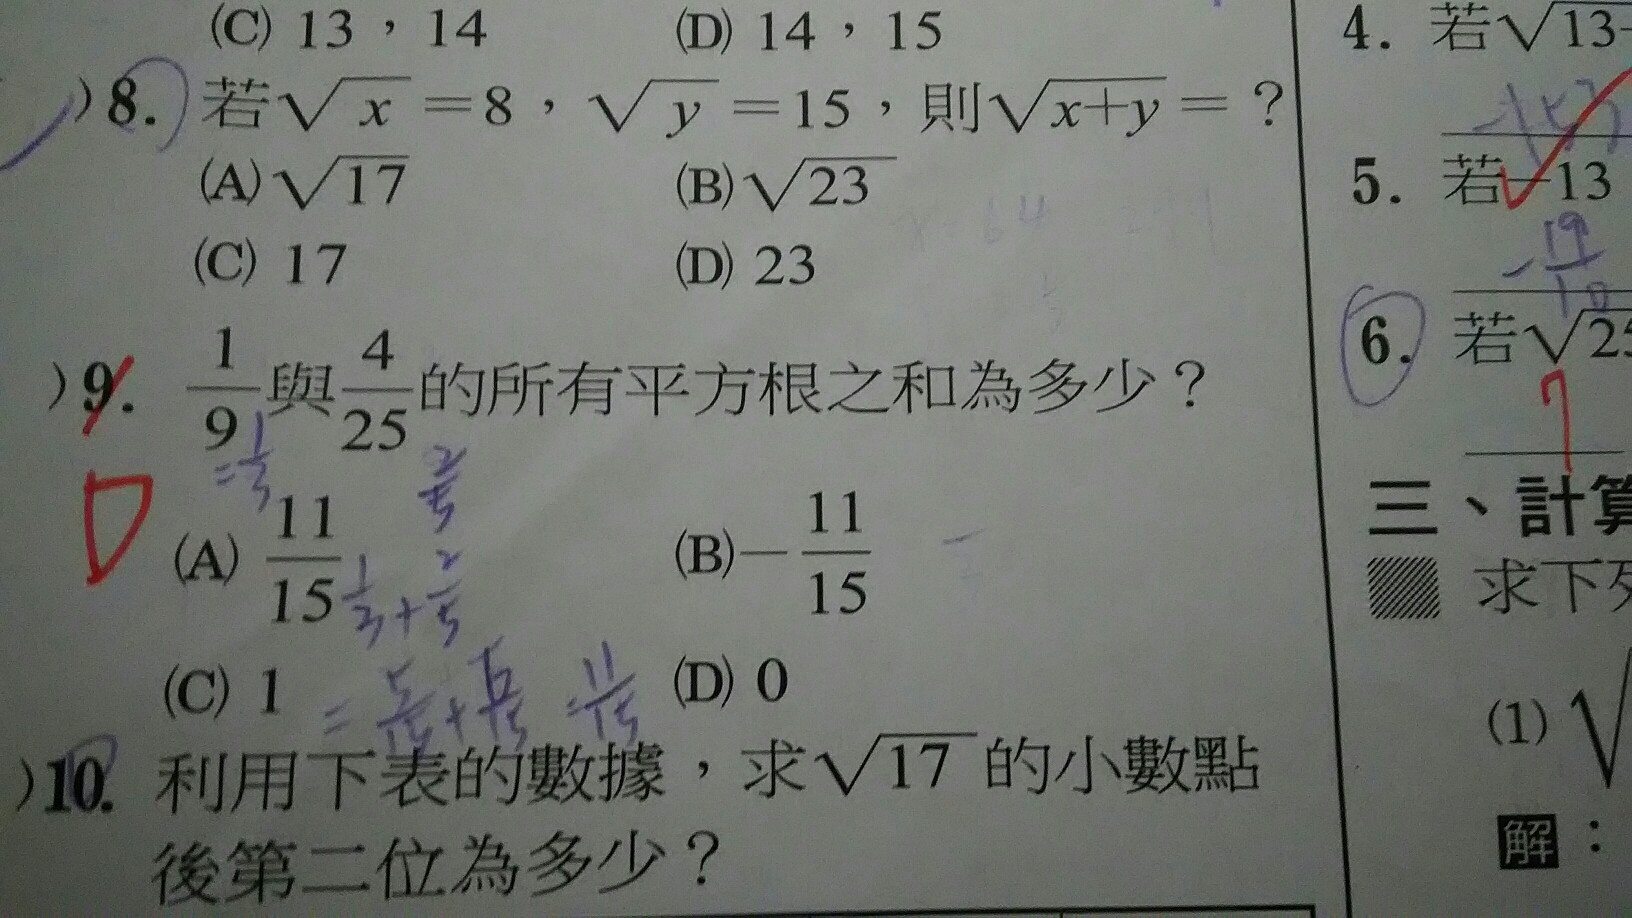 (C) 13，14 (D) 14，15
)8. 若√x＝8，√y＝15，則√x+y＝？
(A)√17 (B)√23
(C) 17 (D) 23
)9. 1/9與4/25的所有平方根之和為多少？
=1/3 2/5
D
(A) 11/15 (B)－11/15
1/3+2/5
(C) 1 (D) 0
=5/15+6/15=11/15
)10. 利用下表的數據，求√17的小數點
後第二位為多少？
4. 若√13
5. 若－13
-19/10
6. 若√25
7
三、計算
求下列
(1) √
解：